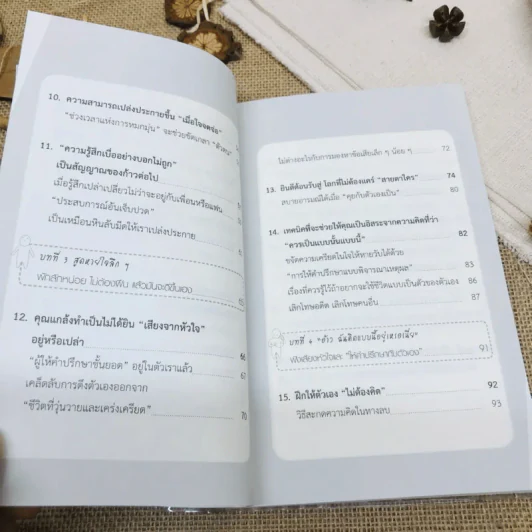 10. ความสามารถเปล่งประกายขึ้น "เมื่อใจจดจ่อ"
"ช่วงเวลาแห่งการหมกมุ่น" จะช่วยขัดเกลา "ตัวตน"
11. "ความรู้สึกเบื่ออย่างบอกไม่ถูก"
เป็นสัญญาณของก้าวต่อไป
เมื่อรู้สึกเปล่าเปลี่ยวไม่ว่าจะอยู่กับเพื่อนหรือแฟน
"ประสบการณ์อันเจ็บปวด"
เป็นเหมือนหินลับมีดให้เราเปล่งประกาย
บทที่ 3 สูดหายใจลึก ๆ
พักสักหน่อย ไม่ต้องฝืน แล้วมันจะดีขึ้นเอง 65
12. คุณแกล้งทำเป็นไม่ได้ยิน "เสียงจากหัวใจ"
อยู่หรือเปล่า 66
"ผู้ให้คำปรึกษาชั้นยอด" อยู่ในตัวเราแล้ว 67
เคล็ดลับการดึงตัวเองออกจาก
"ชีวิตที่วุ่นวายและเคร่งเครียด" 70
ไม่ต่างอะไรกับการมองหาข้อเสียเล็ก ๆ น้อย ๆ 72
13. ยินดีต้อนรับสู่ โลกที่ไม่ต้องแคร์ "สายตาใคร" 74
สบายอารมณ์ได้เมื่อ "คุยกับตัวเองเป็น" 80
14. เทคนิคที่จะช่วยให้คุณเป็นอิสระจากความคิดที่ว่า
"ควรเป็นแบบนั้นแบบนี้" 82
ขจัดความเครียดในใจให้หายวับได้ด้วย
"การให้คำปรึกษาแบบพิจารณาเหตุผล" 83
เรื่องที่ควรรู้ไว้ถ้าอยากจะใช้ชีวิตแบบเป็นตัวของตัวเอง 86
เลิกโทษอดีต เลิกโทษคนอื่น 87
ฟังเสียงหัวใจและ "ให้คำปรึกษากับตัวเอง" 91
15. ฝึกให้ตัวเอง "ไม่ต้องคิด" 92
วิธีสะกดความคิดในทางลบ 93